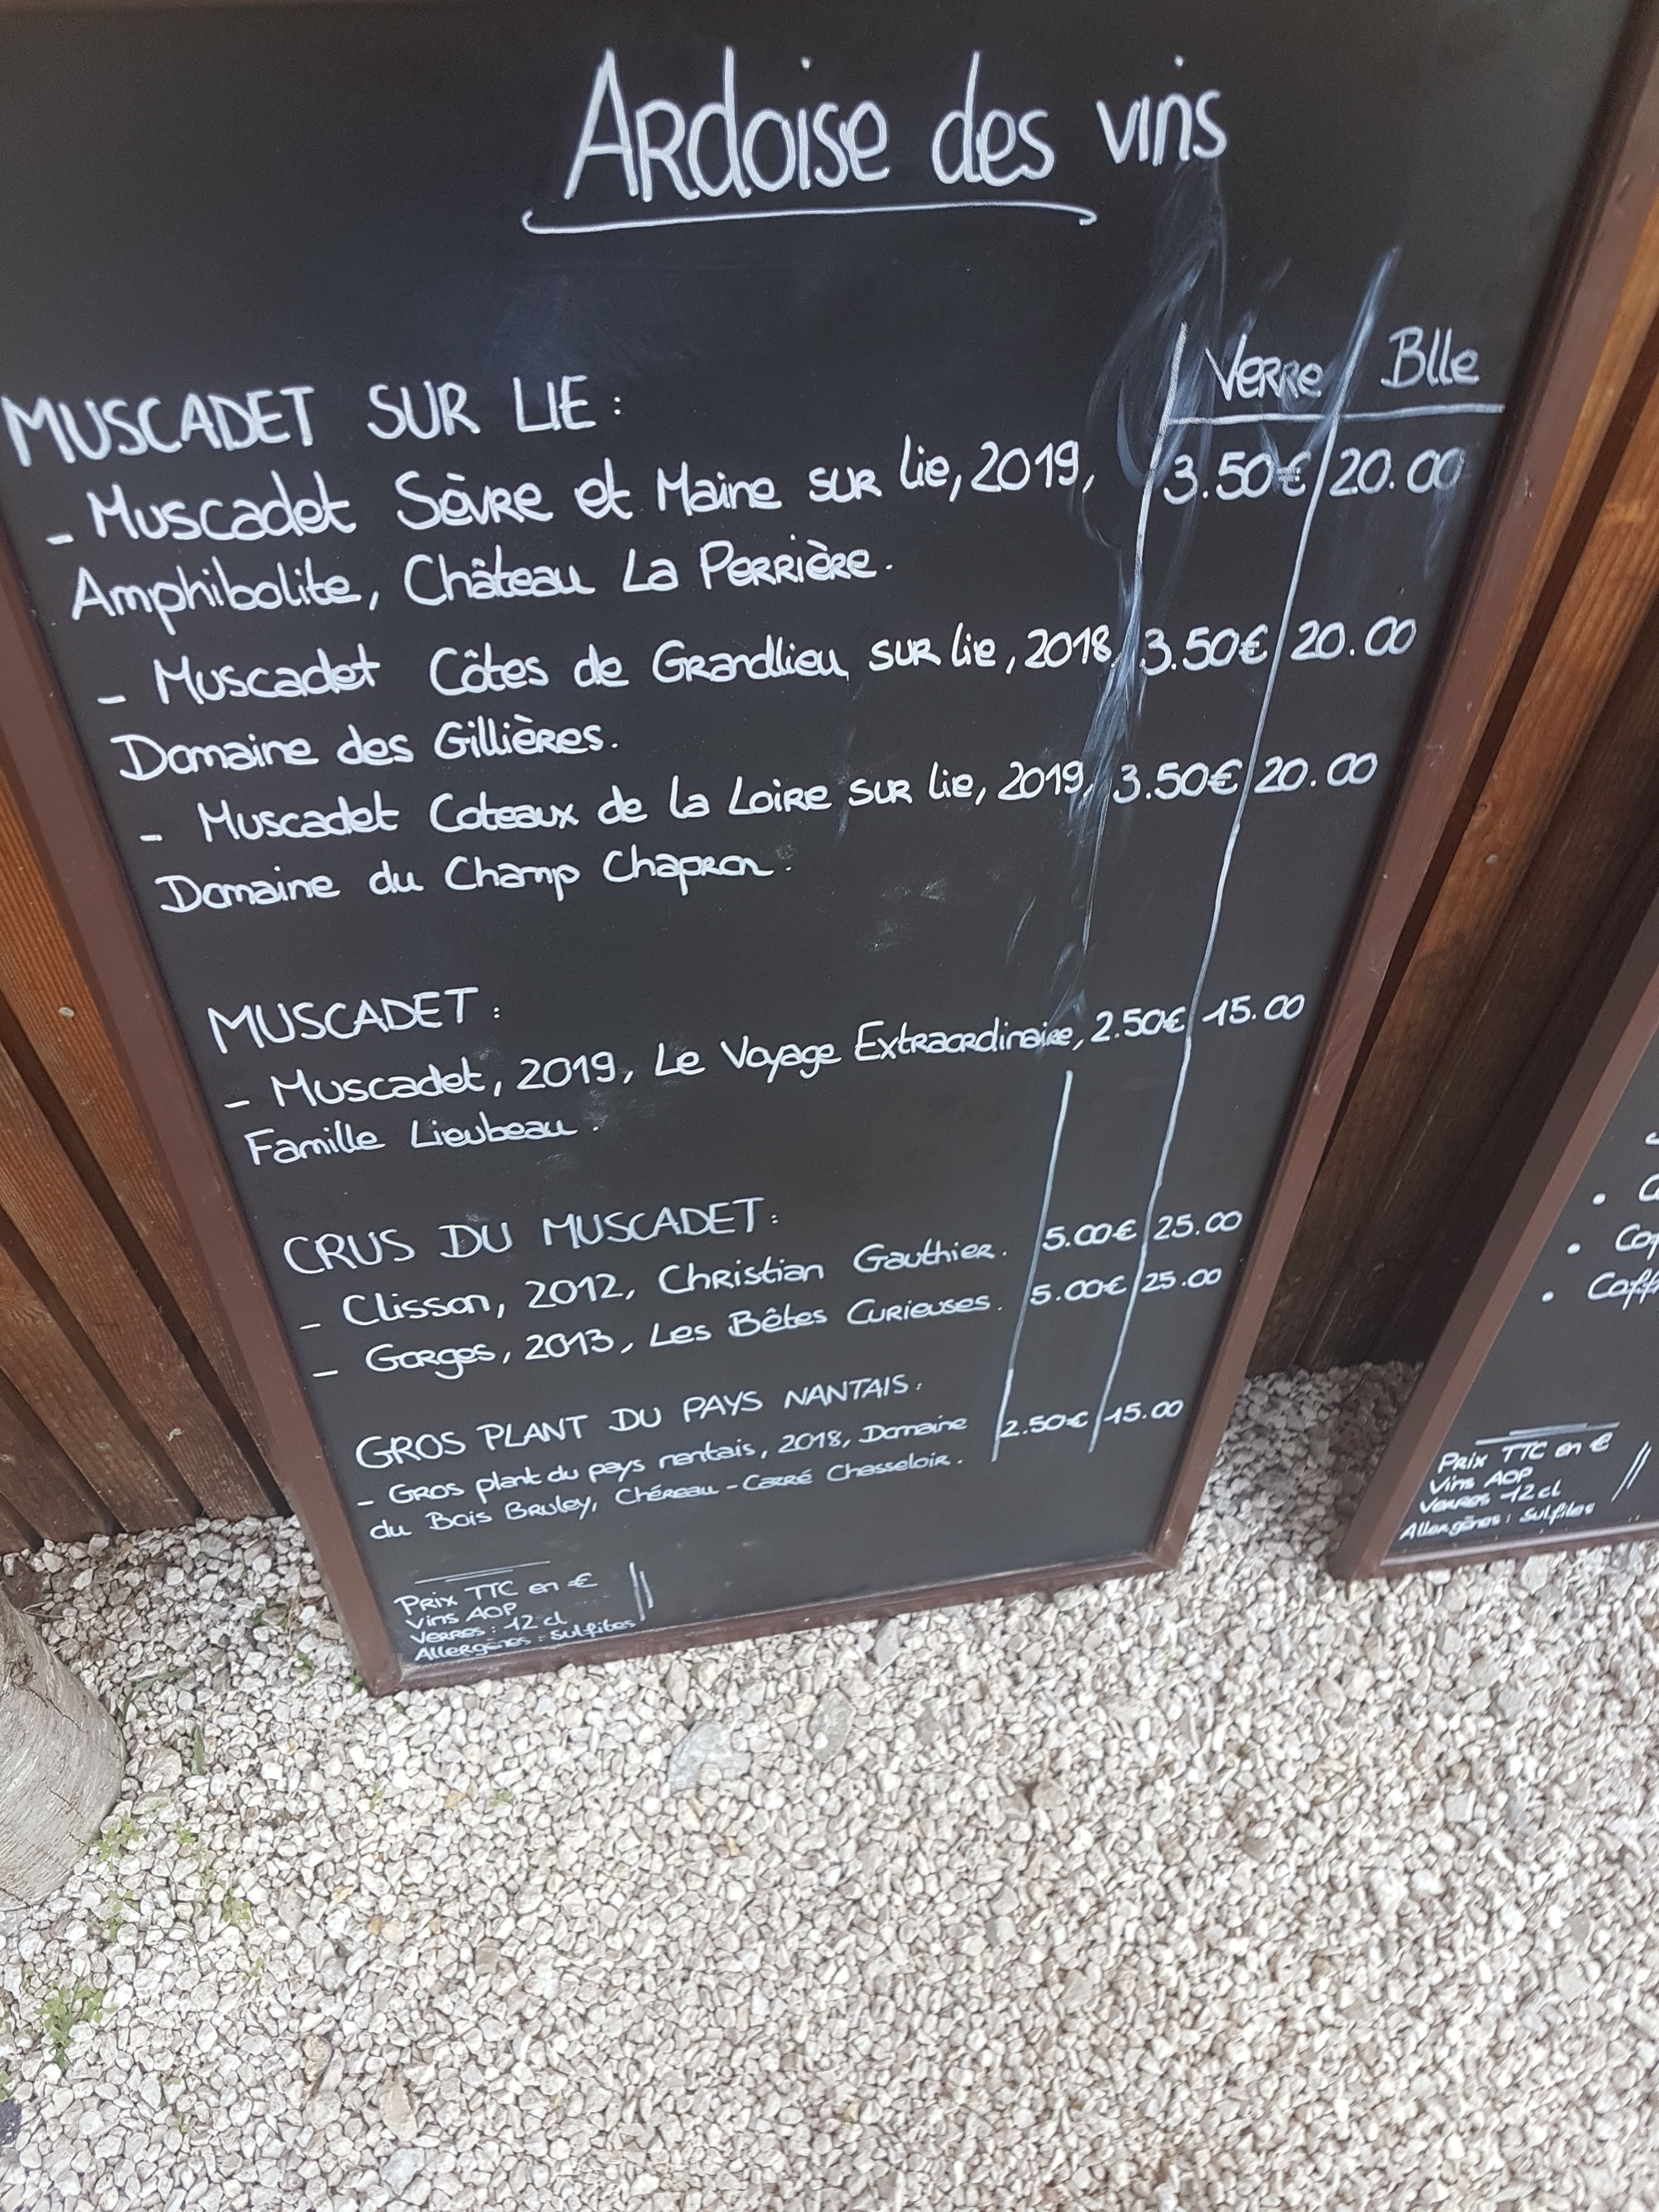 Ardoise des vins
Verre Blle
MUSCADET SUR LIE :
- Muscadet Sèvre et Maine sur lie, 2019, 3.50€ 20.00
Amphibolite, Château La Perrière.
- Muscadet Côtes de Grandlieu sur lie, 2018, 3.50€ 20.00
Domaine des Gillières.
- Muscadet Coteaux de la Loire sur lie, 2019, 3.50€ 20.00
Domaine du Champ Chapron.
MUSCADET :
- Muscadet, 2019, Le Voyage Extraordinaire, 2.50€ 15.00
Famille Lieubeau.
CRUS DU MUSCADET :
- Clisson, 2012, Christian Gauthier. 5.00€ 25.00
- Gorges, 2013, Les Bêtes Curieuses. 5.00€ 25.00
GROS PLANT DU PAYS NANTAIS :
- Gros plant du pays nantais, 2018, Domaine 2.50€ 15.00
du Bois Bruley, Chéreau-Carré Chasseloir.
Prix TTC en €
Vins AOP
Verres : 12 cl
Allergènes : Sulfites
Prix TTC en €
Vins AOP
Verres 12 cl
Allergènes : Sulfites